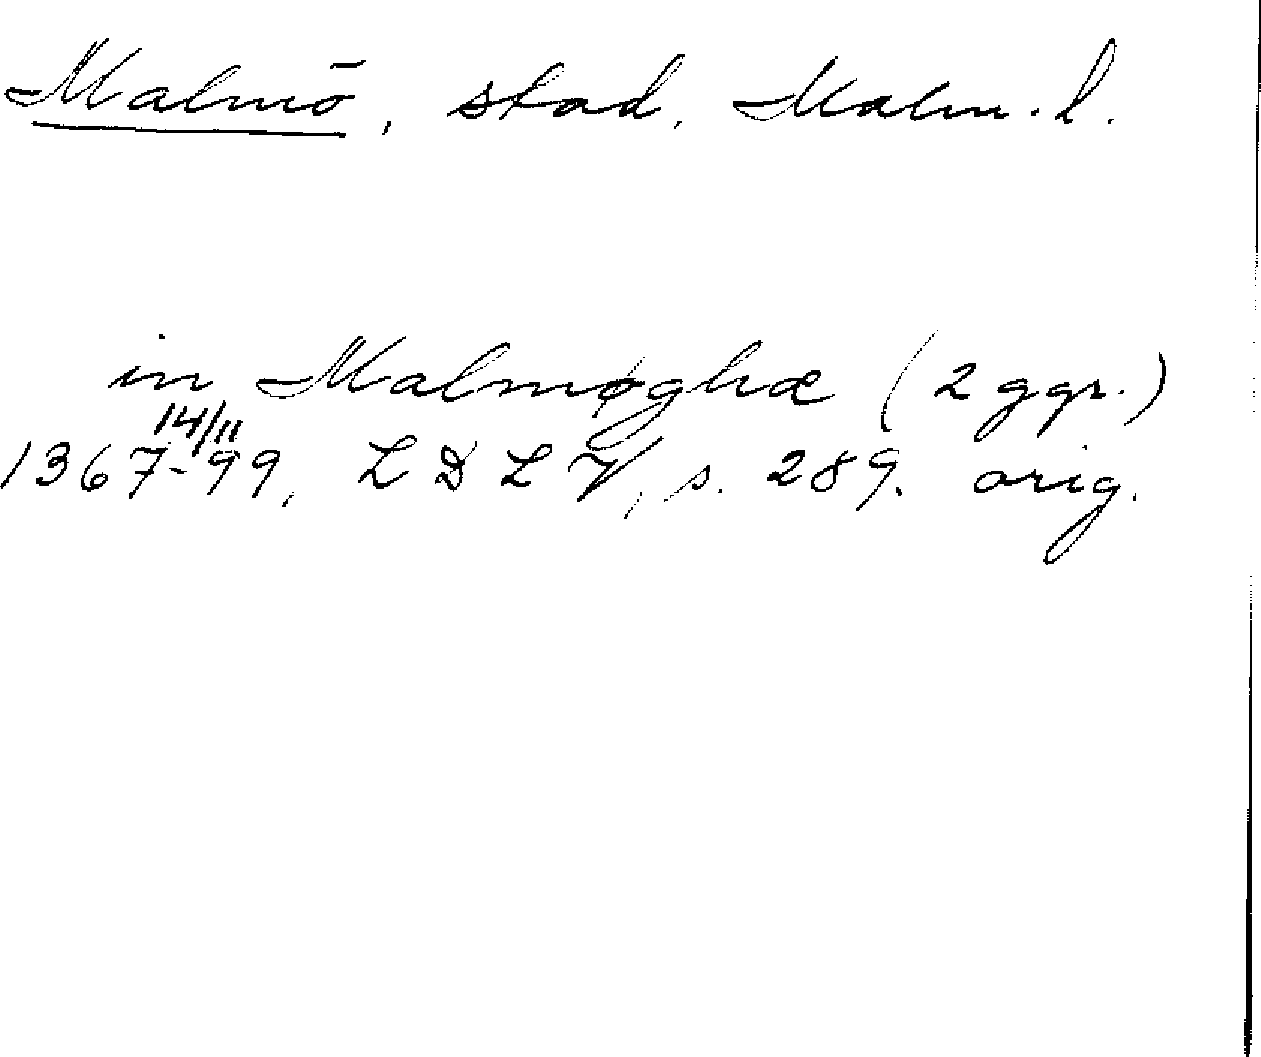 Malmö, stad, Malm. l.
in Malmøghæ (2 ggr.)
14/11
1367-99, LDLV, s. 289. orig.